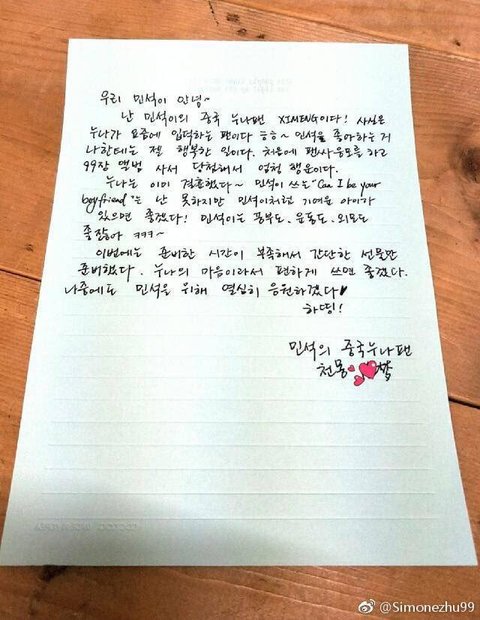 우리 민석이 안녕~
난 민석이의 중국 누나팬 XIMENG이다! 사실은
누나가 요즘에 입덕하는 팬이다 ㅎㅎ~ 민석을 좋아하는 거
나한테는 젤 행복한 일이다. 처음에 팬싸 응모를 하고
99장 앨범 사서 당첨해서 엄청 행운이다.
누나는 이미 결혼했다~ 민석이 쓰는 "Can I be your
boyfriend"는 난 못하지만 민석이처럼 기여운 아이가
있으면 좋겠다! 민석이는 공부도, 운동도, 외모도
좋잖아 ㅋㅋㅋ~
이번에는 준비한 시간이 부족해서 간단한 선물만
준비했다. 누나의 마음이라서 편하게 쓰면 좋겠다.
나중에도 민석을 위해 열심히 응원하겠다♥
하띵!
민석의 중국누나팬
천몽
@Simonezhu99